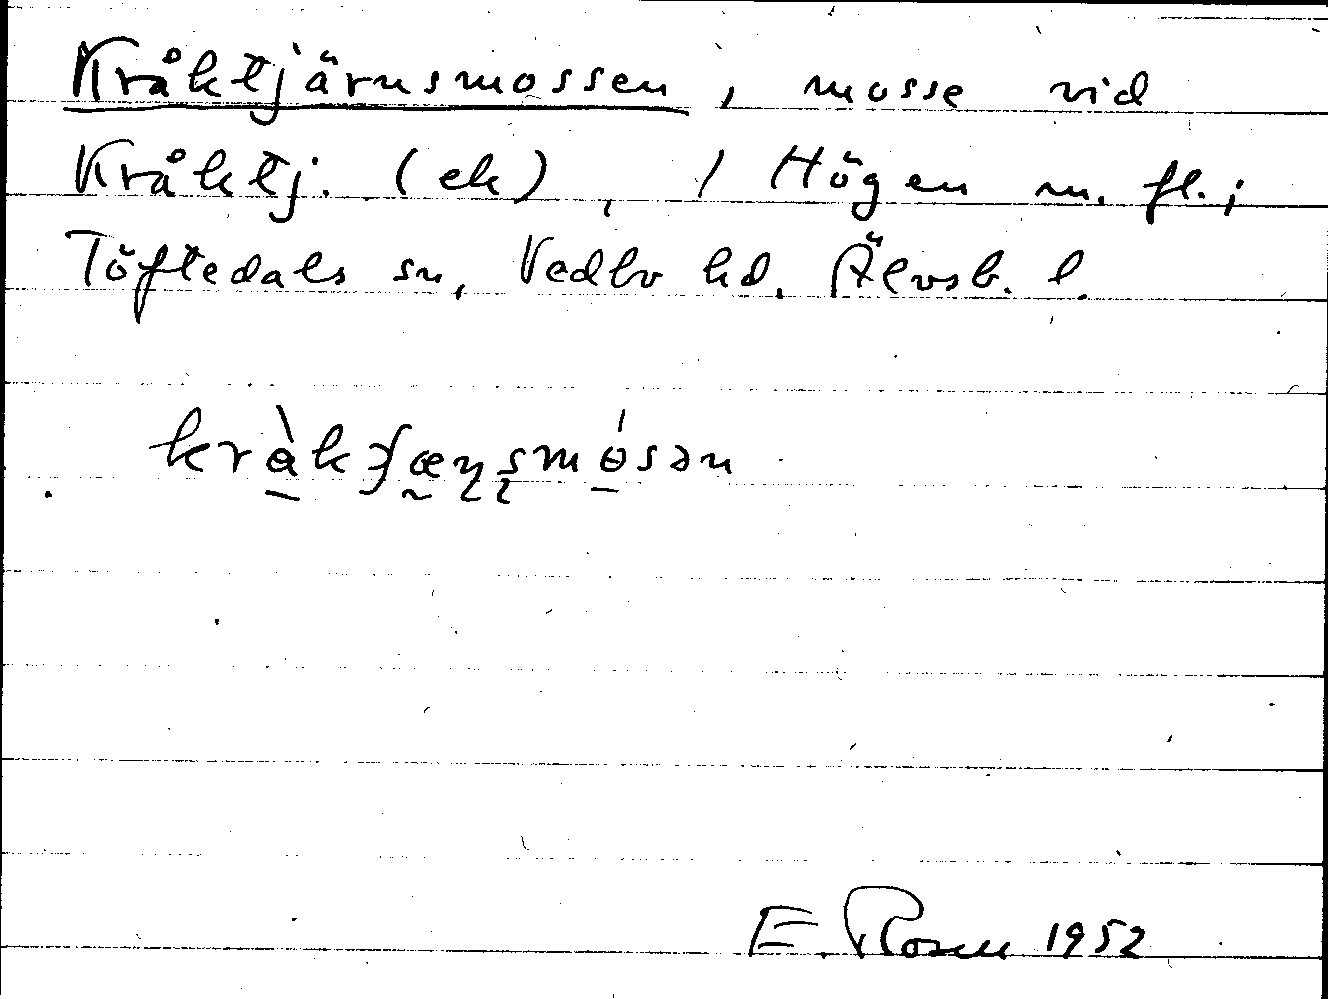 Kråktjärnsmossen, mosse vid
Kråktj. (ek), / Högen m. fl.;
Töftedals sn, Vedbo hd. Älvsb. l.
E. Rosen 1952